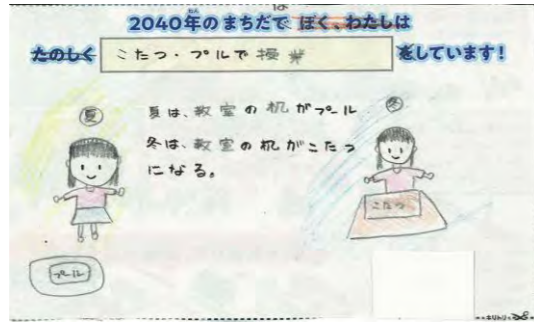 は
2040年のまちだで ぼく、わたしは
たのしく こたつ・プールで授業 をしています!
夏
夏は、教室の机がプール
冬は、教室の机がこたつ
になる。
冬
こたつ
プール
キリトリ